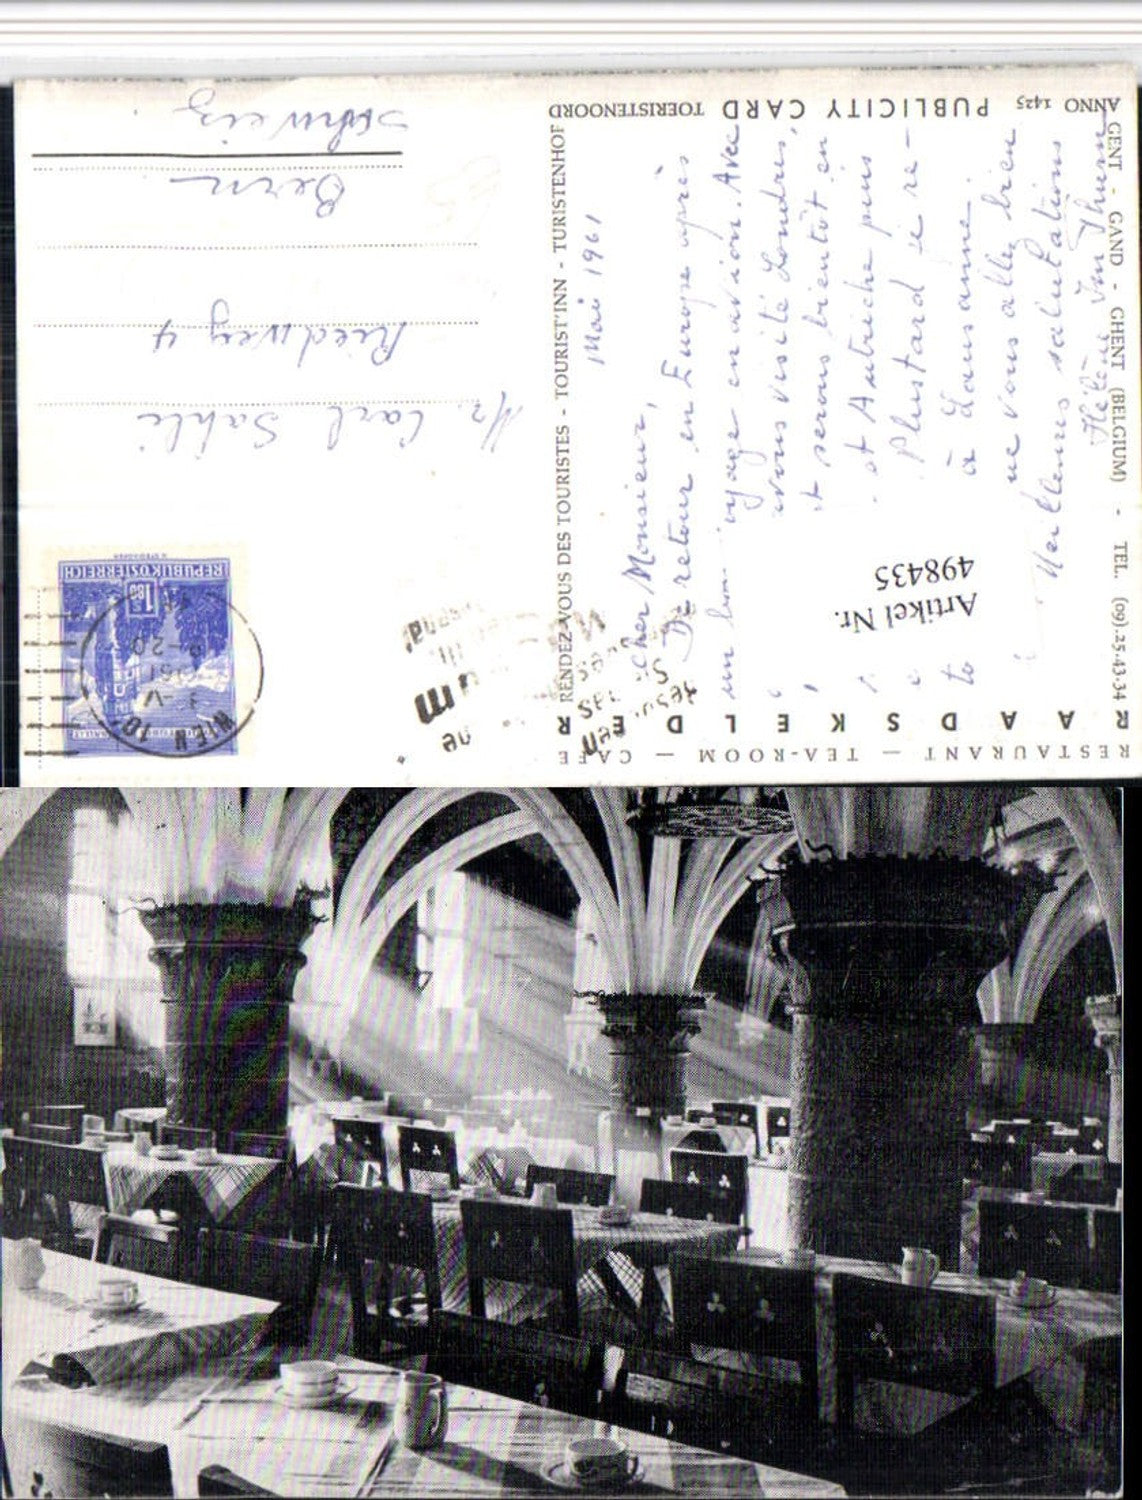 RESTAURANT — TEA-ROOM — CAFE
RAADSKELDER
RENDEZ-VOUS DES TOURISTES - TOURIST'INN - TURISTENHOF
TOERISTENOORD PUBLICITY CARD ANNO 1425
GENT - GAND - GHENT (BELGIUM) - TEL. (09).25.43.34
Mai 1961
Cher Monsieur,
De retour en Europe après
un voyage en avion. Avec
avons visité Londres,
et serons bientôt en
et Autriche puis
Plustard je re-
à Lausanne.
ne vous allez bien
Meilleures salutations
Hélène Im Thurn
Artikel Nr.
498435
REPUBLIK ÖSTERREICH
1.80
WIEN 101
Mr. Carl Sahli
Riedweg 4
Bern
Schweiz